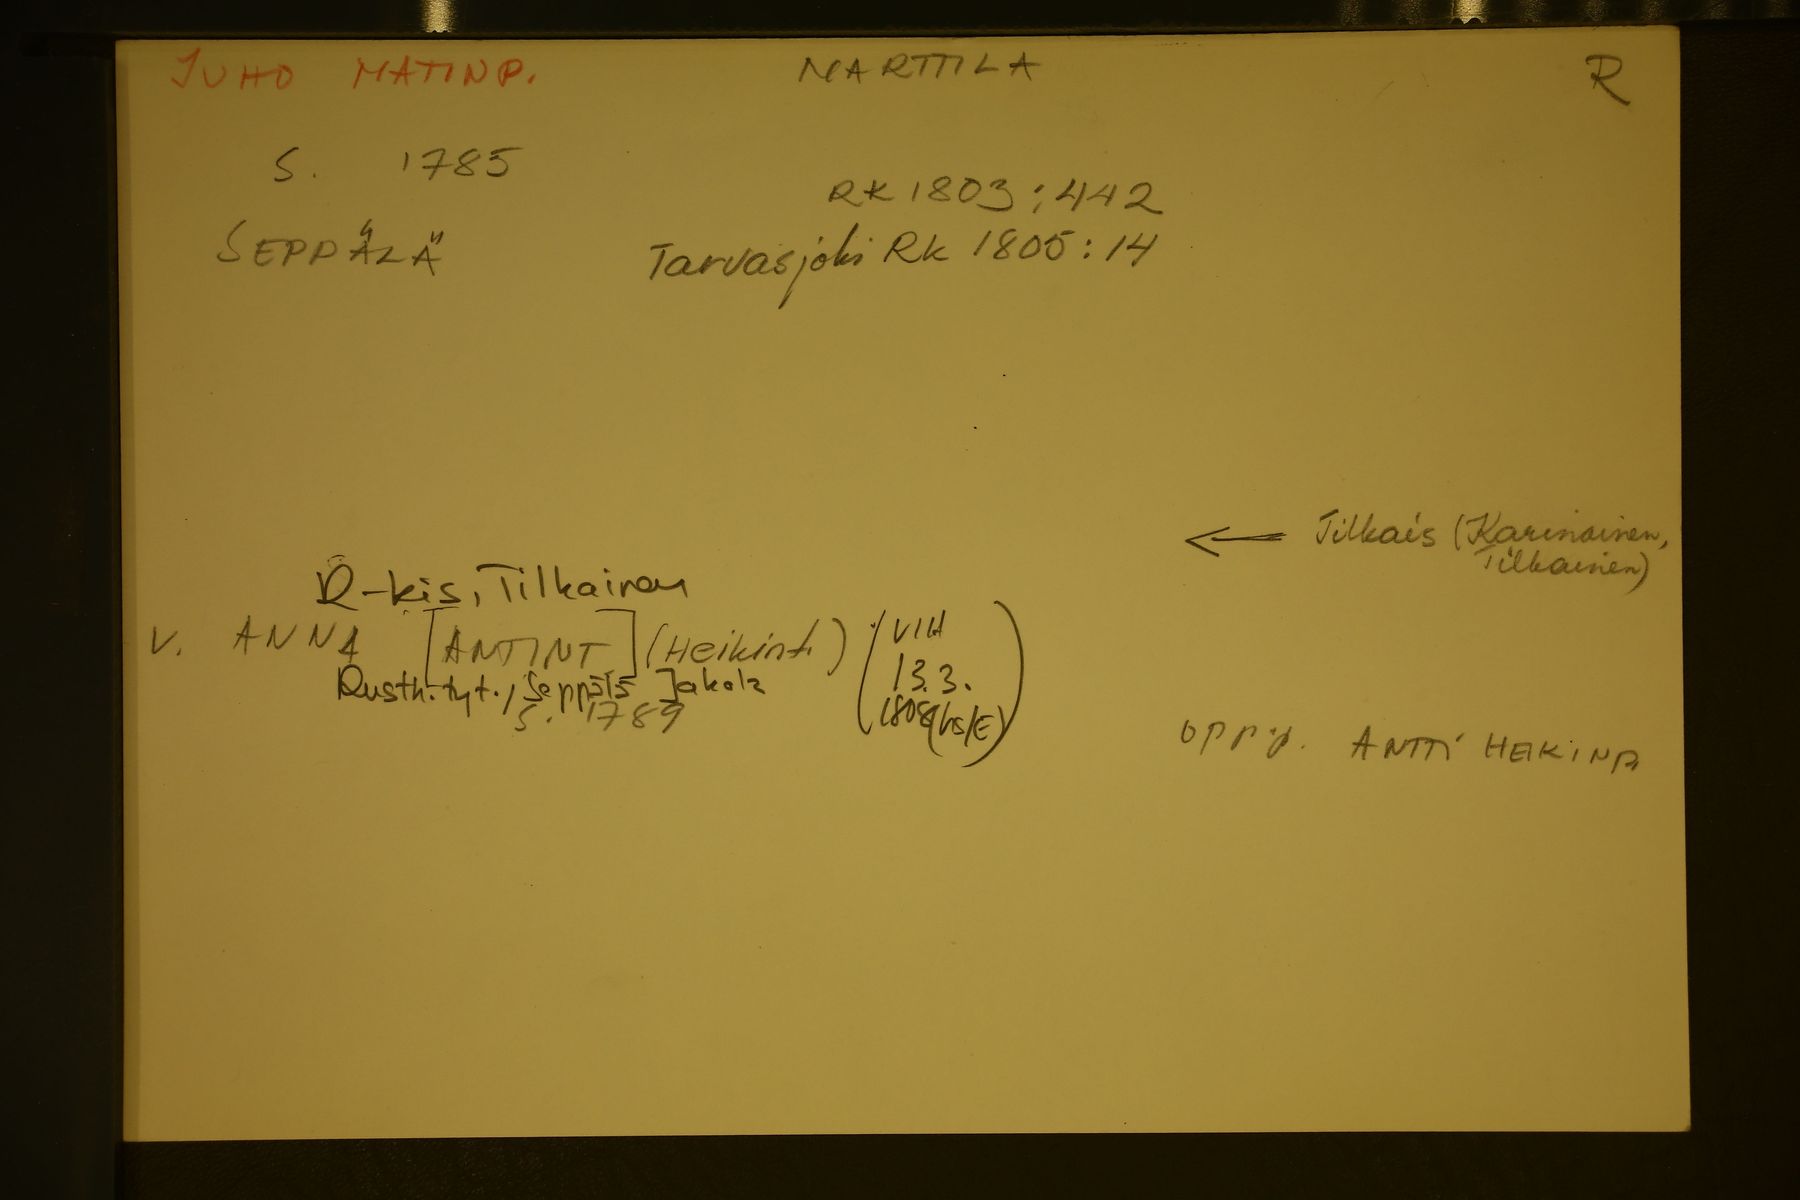 JUHO MATINP. MARTTILA R
S. 1785
RK 1803:442
SEPPÄLÄ Tarvasjoki Rk 1805:14
← Tilkais (Karinainen,
Tilkainen)
R-kis, Tilkainen
V. ANNA [ANTINT] (Heikint.) (VIH
13.3.
1808 (hs/E))
Rusth. tyt., Seppälä Jakola
S. 1789
ANTTI HEIKINP.